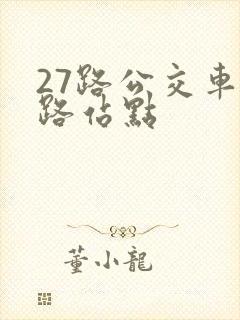 27路公交車
路佔點
董小龍